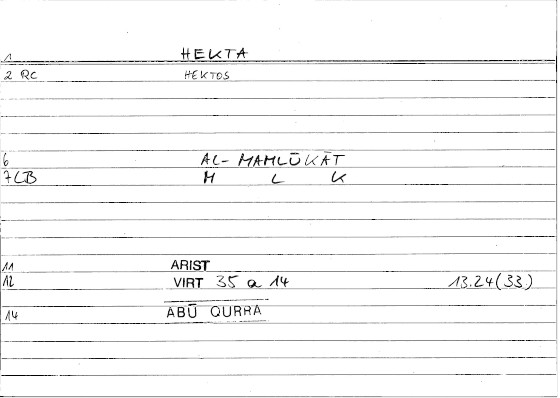 1 HEKTA
2 RC HEKTOS
6 AL-MAMLŪKĀT
7LB M L K
11 ARIST
12 VIRT 35 a 14 13.24(33)
14 ABŪ QURRA